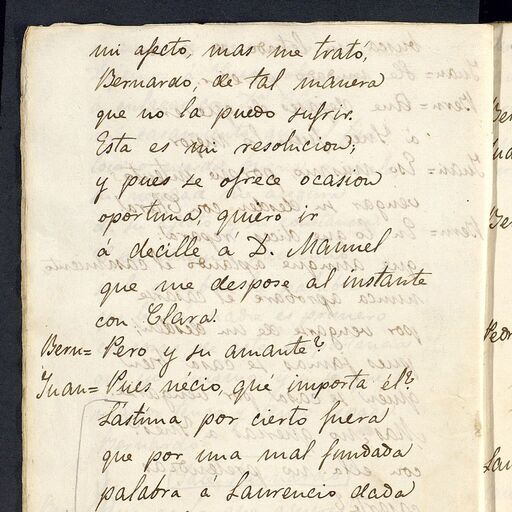 mi afecto, mas me trató,
Bernardo, de tal manera
que no la puedo sufrir.
Esta es mi resolucion;
y pues se ofrece ocasion
oportuna, quiero ir
á decille á D. Manuel
que me despose al instante
con Clara.
Bern= Pero y su amante?
Juan= Pues nécio, qué importa él?
Lástima, por cierto fuera
que por una mal fundada
palabra á Laurencio dada